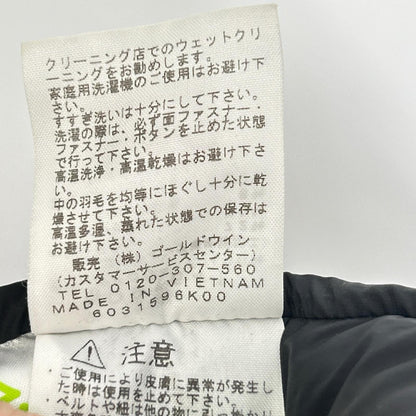 クリーニング店でのウェットクリ
ーニングをお勧めします。
家庭用洗濯機のご使用はお避け下
さい。
すすぎ洗いは十分にして下さい。
洗濯の際は、必ず面ファスナー・
ファスナー・ボタンを止めた状態
で行って下さい。
高温洗浄・高温乾燥はお避け下さ
い。
中の羽毛を均等にほぐし十分に乾
燥させて下さい。
高温多湿、蒸れた状態での保存は
お避け下さい。
販売 (株)ゴールドウイン
(カスタマーサービスセンター)
TEL 0120-307-560
MADE IN VIETNAM
6031596K00
注意
ご使用により皮膚に異常が発生し
た時は使用をお止め下さい。
ベルトや紐は他の物に引っ掛かり